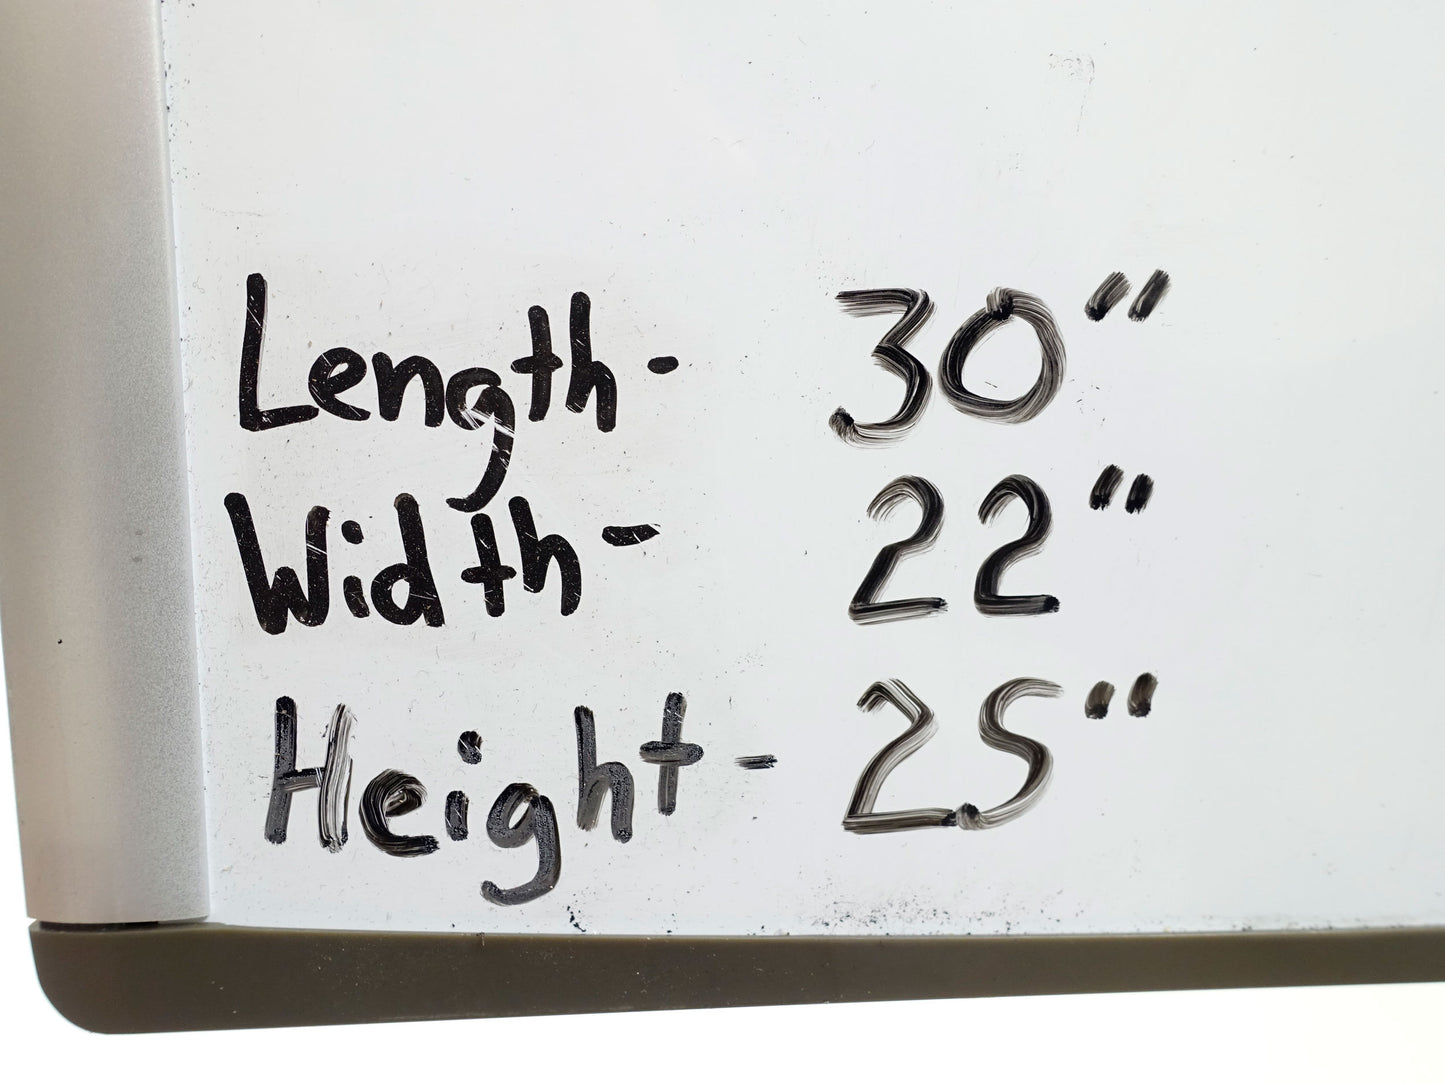 Length- 30"
Width- 22"
Height- 25"